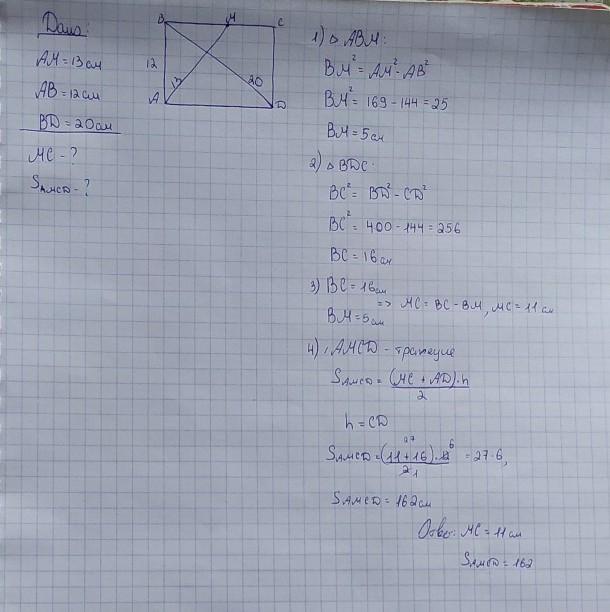 Дано:
AM = 13 см
AB = 12 см
BD = 20 см
MC - ?
S AMCD - ?
B M C
12
13 20
A D
1) △ ABM:
BM² = AM² - AB²
BM² = 169 - 144 = 25
BM = 5 см
2) △ BDC:
BC² = BD² - CD²
BC² = 400 - 144 = 256
BC = 16 см
3) BC = 16 см
=> MC = BC - BM, MC = 11 см
BM = 5 см
4) AMCD - трапеция
S AMCD = (MC + AD) · h
2
h = CD
27 6
S AMCD = (11 + 16) · 12 = 27 · 6,
2 1
S AMCD = 162 см
Ответ: MC = 11 см
S AMCD = 162